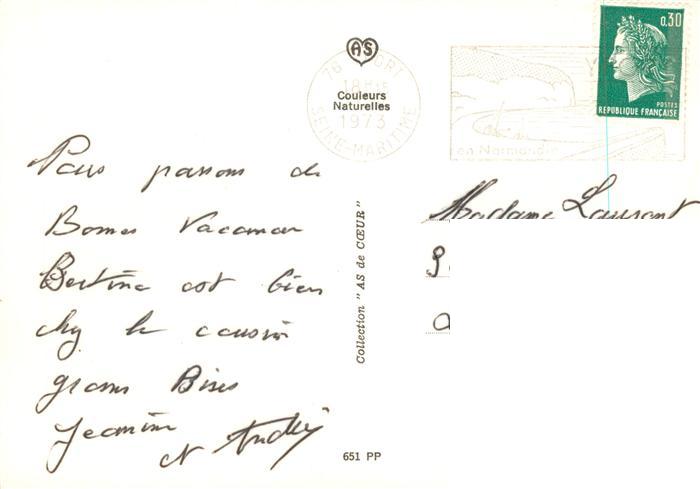 0,30
POSTES
REPUBLIQUE FRANÇAISE
AS
18H
Couleurs
Naturelles
1973
SEINE-MARITIME
en Normandie
Nous passons de
Bonnes Vacances
Bertine est bien
chez le cousin
grosses Bises
Jeannine
et André
Collection "AS de CŒUR"
651 PP
Madame Laurent